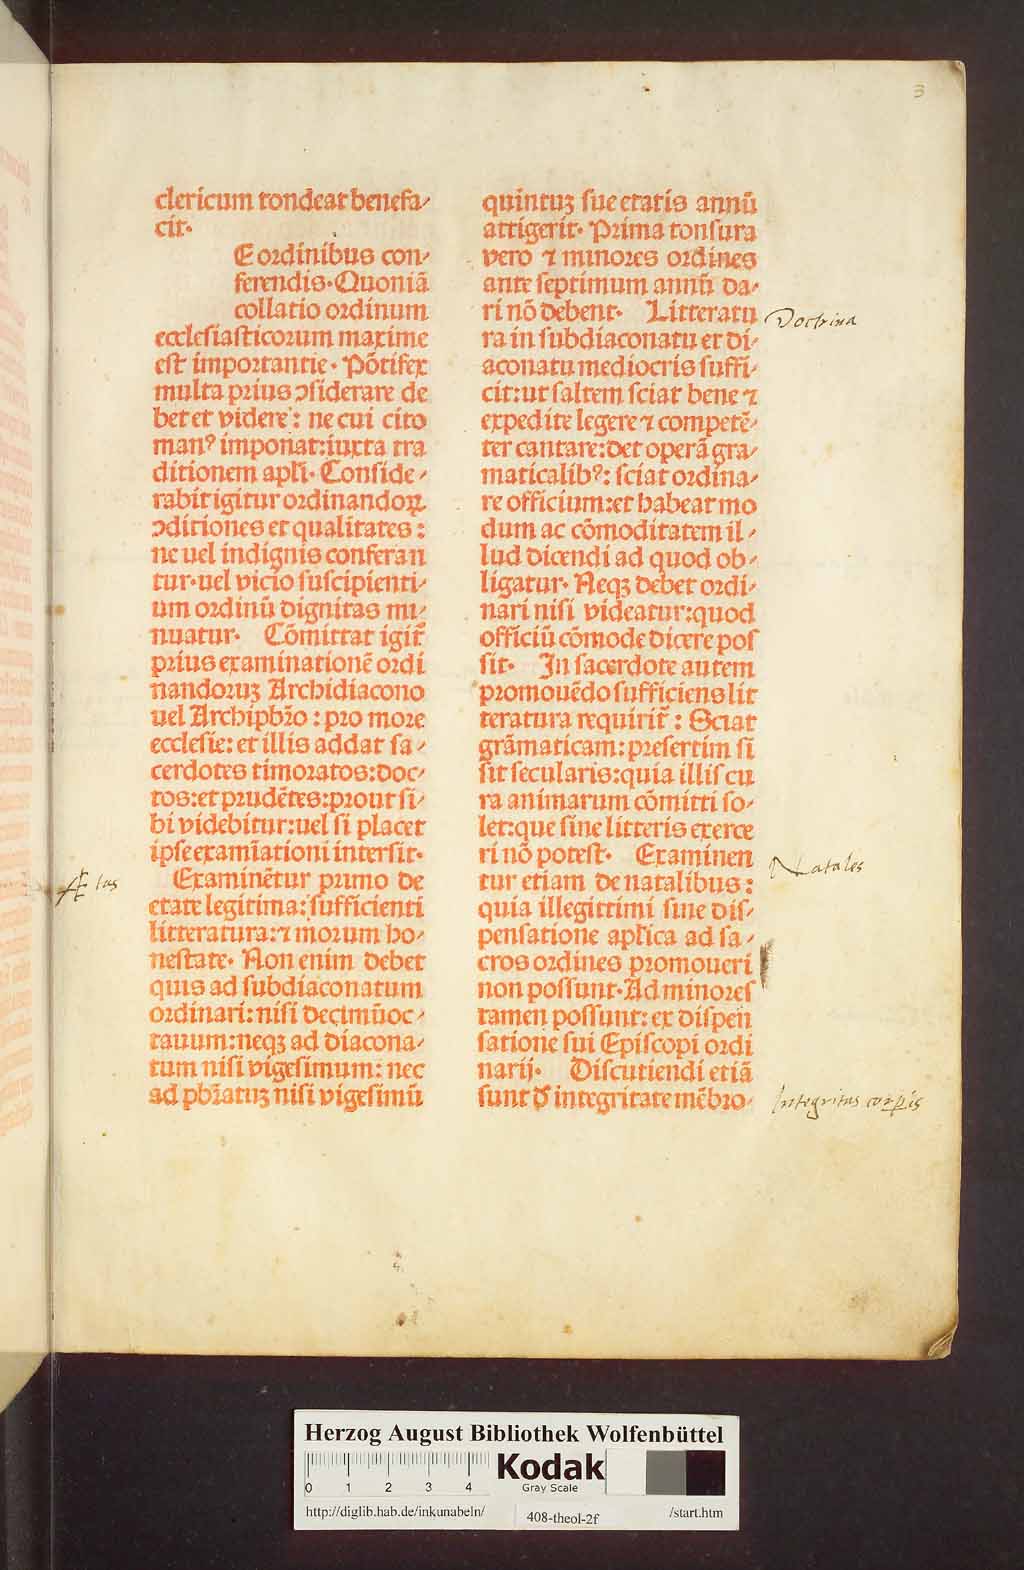 3
clericum tondeat benefa⸗
cit.
E ordinibus con⸗
ferendis. Quoniā
collatio ordinum
ecclesiasticorum maxime
est importantie. Pōtifex
multa prius ꝯsiderare de
bet et videre: ne cui cito
manꝰ imponat: iuxta tra
ditionem apl̄i. Conside⸗
rabit igitur ordinandoꝝ
ꝯditiones et qualitates:
ne uel indignis conferan
tur. uel vicio suscipienti⸗
um ordinū dignitas mi⸗
nuatur. Cōmittat igit̄
prius examinationē ordi
nandoruꝫ Archidiacono
uel Archipb̄ro: pro more
ecclesie: et illis addat sa⸗
cerdotes timoratos: doc⸗
tos: et prudētes: prout si⸗
bi videbitur: uel si placet
ipse examīationi intersit.
Examinētur primo de
etate legitima: sufficienti
litteratura: ⁊ morum ho⸗
nestate. Non enim debet
quis ad subdiaconatum
ordinari: nisi decimū oc⸗
tauum: neqꝫ ad diacona⸗
tum nisi vigesimum: nec
ad pb̄ratuꝫ nisi vigesimū
Ætas
quintuꝫ sue etatis annū
attigerit. Prima tonsura
vero ⁊ minores ordines
ante septimum annū da⸗
ri nō debent. Litteratu
ra in subdiaconatu et di⸗
aconatu mediocris suffi⸗
cit: ut saltem sciat bene ⁊
expedite legere ⁊ competē⸗
ter cantare: det operā gra⸗
maticalibꝰ: sciat ordina⸗
re officium: et habeat mo
dum ac cōmoditatem il⸗
lud dicendi ad quod ob⸗
ligatur. Neqꝫ debet ordi⸗
nari nisi videatur: quod
officiū cōmode dicere pos
sit. In sacerdote autem
promouēdo sufficiens lit
teratura requirit̄: Sciat
grāmaticam: presertim si
sit secularis: quia illis cu
ra animarum cōmitti so⸗
let: que sine litteris exerce
ri nō potest. Examinen
tur etiam de natalibus:
quia illegittimi sine dis⸗
pensatione apl̄ica ad sa⸗
cros ordines promoueri
non possunt. Ad minores
tamen possunt: ex dispen
satione sui Episcopi ordi
narij. Discutiendi etiā
sunt đ integritate mēbro⸗
Doctrina
Natales
Integritas corpis
Herzog August Bibliothek Wolfenbüttel
0 1 2 3 4
Kodak
Gray Scale
http://diglib.hab.de/inkunabeln/ 408-theol-2f /start.htm